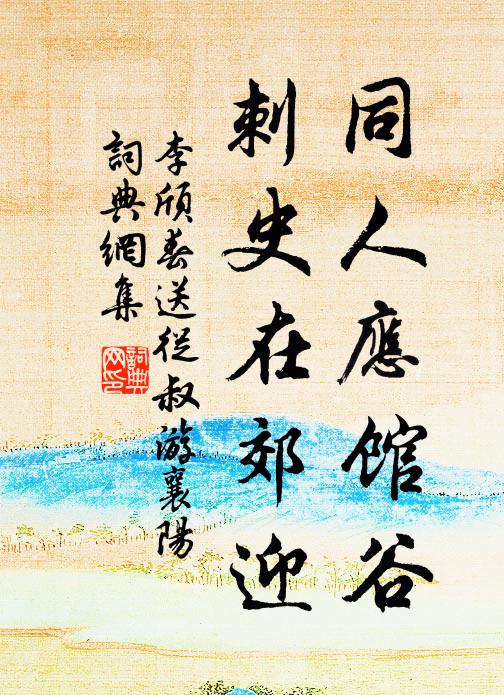 同人應館谷
刺史在郊迎
李頎春送從叔游襄陽
詞典網集
詞典网印